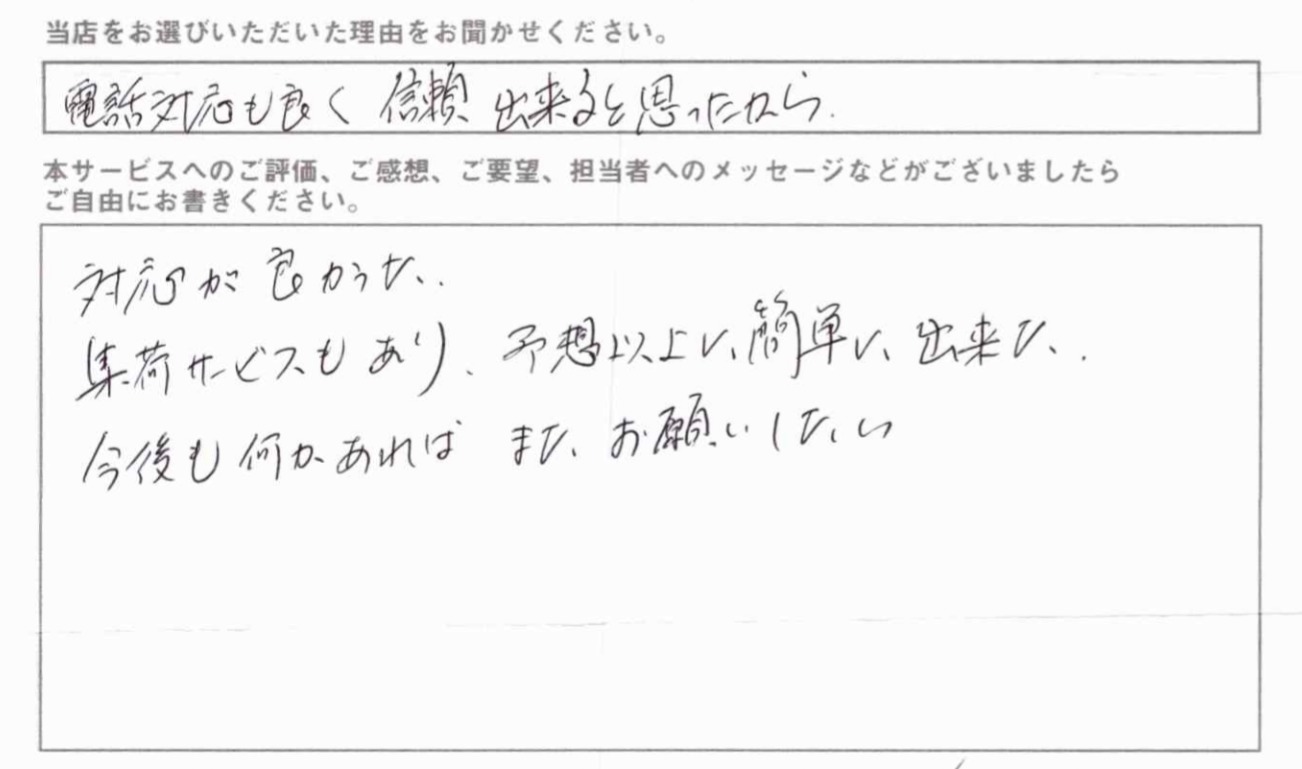 当店をお選びいただいた理由をお聞かせください。
電話対応も良く 信頼 出来ると思ったから.
本サービスへのご評価、ご感想、ご要望、担当者へのメッセージなどがございましたら
ご自由にお書きください。
対応が良かった.
集荷サービスもあり、予想以上に簡単に出来た.
今後も何かあれば また、お願いしたい